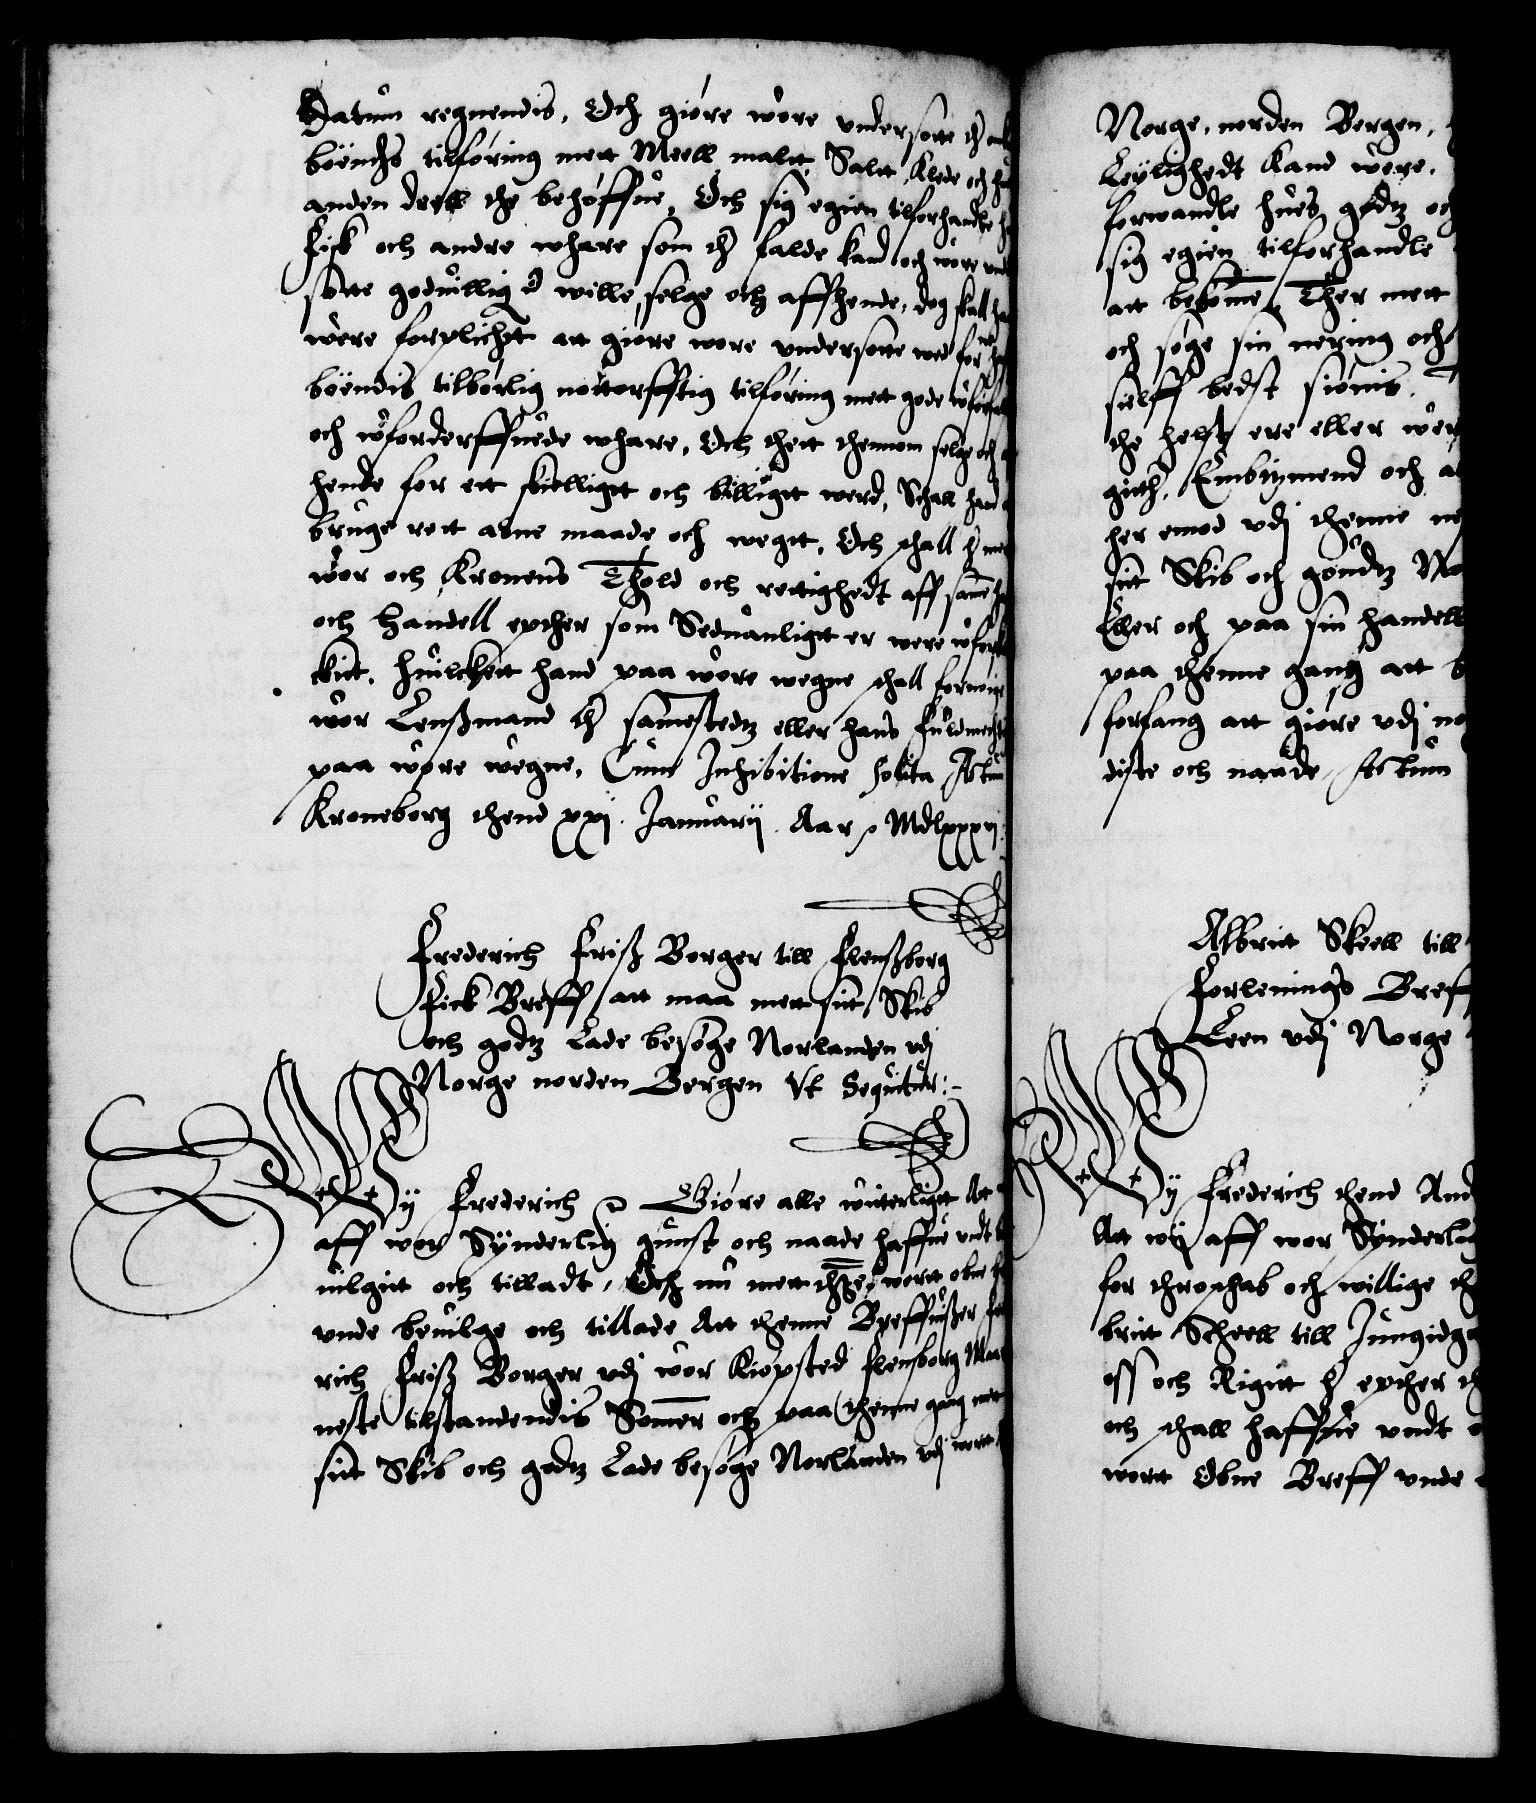 Datum regnendis, Och giøre wore vndersotte ther
boendis tilføring mett Meell maltt, Saltt, Klede och
anden deell the behøffue, Och sig egien tilforhandle
fisk och andre whare som ther falde kand och wore
sotte goduillig ther wille, selge och affhende, dog skall
were forplicht att giøre wore vndersotte wed for
boendis tilbørlig nøttorfftig tilføring mett gode
och wforderffuede whare, Och thett thennom selge och
hende for ett skielligtt och billigtt werd, Schall hand
bruge rett alne maade och wegtt, Och schall
wor och Kronens Thold och rettighedt aff samme
och Handell epther som Seduanligtt er were
kitt, huilckett hand paa wore wegne schall fornøige
wor Lenßmand ther sammestedtz eller hans fuldmecht
paa wore wegne, Cum Inhibitione solita Actum
Kroneborg thend xxj Januarij Aar MDlxxxj

Frederich Friß Borger till Flensborg
Fick Breff att maa mett sit Skib
och godtz Lade besøge Norlanden vdj
Norge norden Bergen Vt Sequitur:

Wy Frederich Giøre alle witterligtt Att
aff wor Synderlig gunst och naade haffue vndt
uilgitt och tilladt, Och nu mett thette wortt obne
vnde beuilge och tillade Att thenne Breffuißer
rich Friß Borger vdj wor Kiøpsted flensborg Maa
neste tilstandendis Sommer och paa thenne gang mett
sit Skib och godtz Lade besøge Norlanden vdj wortt

Norge, norden Bergen,
Leylighedt kand were,
forwandle hues godtz och
sig egien tilforhandle
att bekomme, Ther mett
och søge sin nering och
sielff bedst siunis,
the helst ere eller
Embitzmend och
her emod vdj thenne
sit Skib och goudtz
Eller och paa sin handell
paa thenne gang att
forfang att giøre vdj
diste och naade, Actum

Albritt Skeell till
Forlenings Breff
Leen vdj Norge

Wy Frederich thend And
Att wy aff wor Synderlig
for throschab och willige
britt Scheell till Jungidga
oss och Rigitt her epther
och schall haffue vndt
wortt Obne Breff vnde